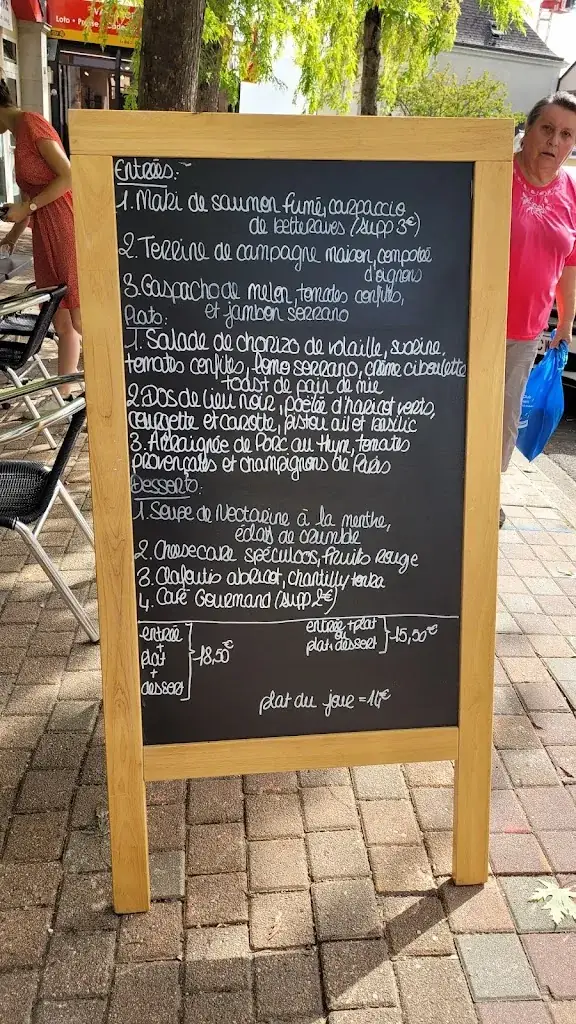 Loto • Presse •
Entrées:
1. Maki de saumon fumé, carpaccio
de betteraves (supp 3€)
2. Terrine de campagne maison, compotée
d'oignons
3. Gaspacho de melon, tomates confites,
et jambon serrano
Plats:
1. Salade de chorizo de volaille, sucrine,
tomates confites, pomo serrano, crème ciboulette
toast de pain de mie
2. Dos de lieu noir, poêlée d'haricot verts,
courgette et carotte, pistou ail et basilic
3. Arraignée de Porc au thym, tomates
provençales et champignons de Paris
Desserts:
1. Soupe de Nectarine à la menthe,
éclats de crumble
2. Cheesecake spéculoos, fruits rouge
3. Clafoutis abricot, chantilly tonka
4. Café Gourmand (supp 2€)
entrée + plat + dessert } 18,50€
entrée + plat ou plat + dessert } 15,50€
plat du jour = 11€